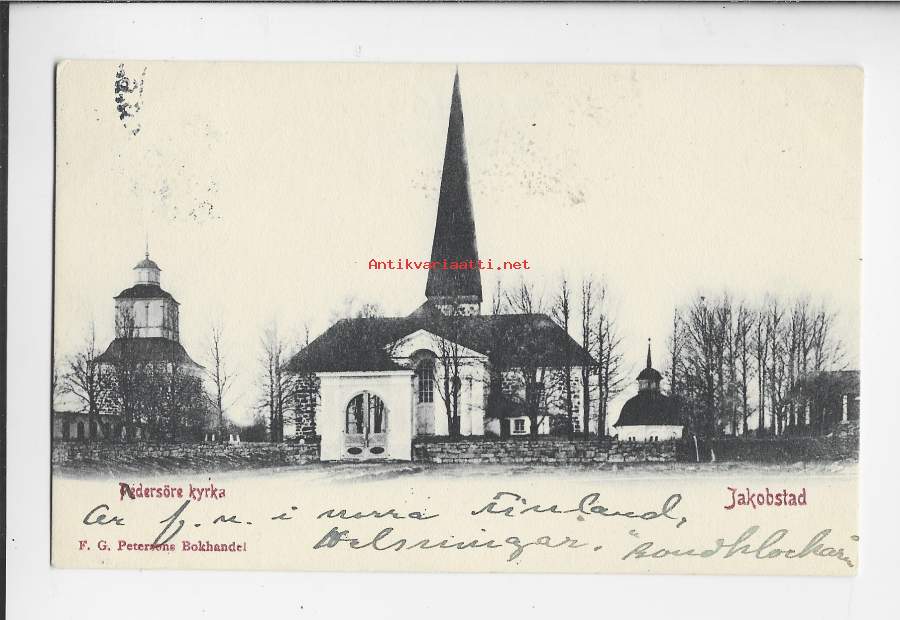 Antikvariaatti.net
Pedersöre kyrka
Jakobstad
är f. n. i norra Finland,
F. G. Petersons Bokhandel
Helsningar.